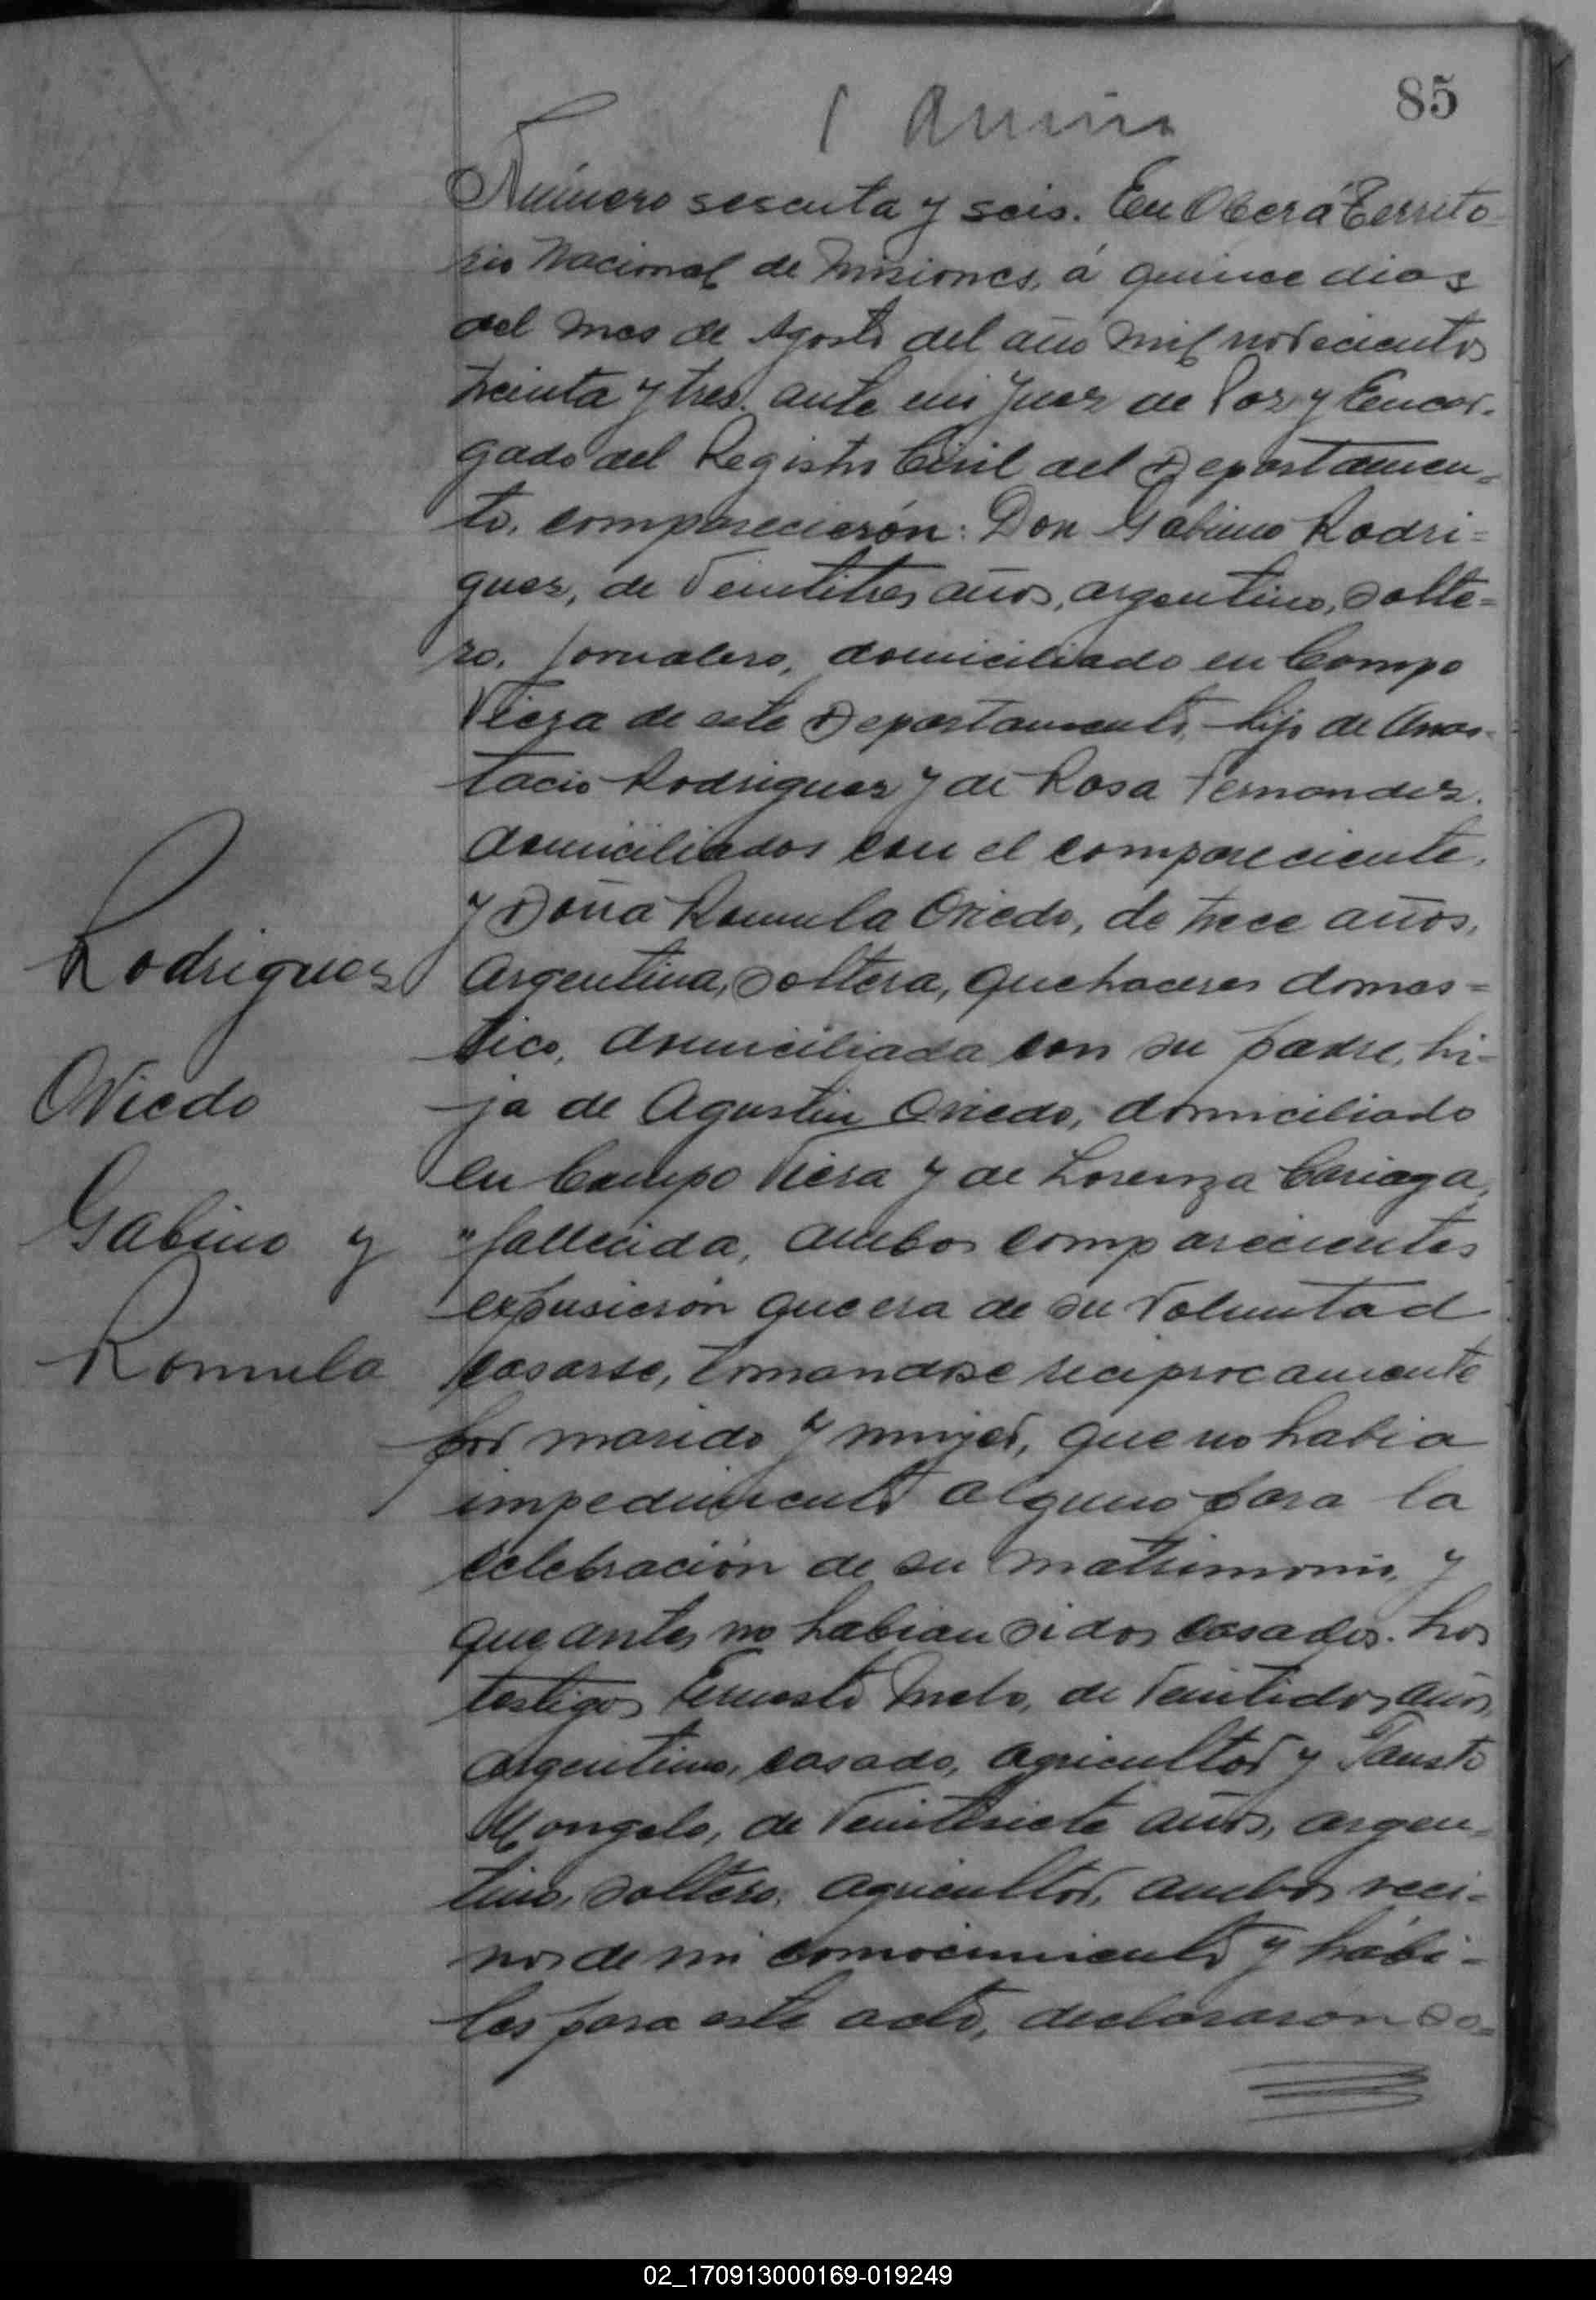 85
Número sesenta y seis. En Oberá Territo-
rio Nacional de Misiones, á quince dias
del mes de Agosto del año mil novecientos
treinta y tres. ante mi Juez de Paz y Encar-
gado del Registro Civil del Departamen-
to, comparecierón: Don Gabino Rodri=
guez, de Veintitres años, argentino, solte=
ro. Jornalero, domiciliado en Campo
Viera de este Departamento, hijo de Anas-
tacio Rodriguez y de Rosa Fernandez.
domiciliados con el compareciente,
y Doña Romula Oviedo, de trece años,
Rodriguez
Argentina, soltera, quehaceres domes=
tico, domiciliada con su padre, hi-
Oviedo
ja de Agustin Oviedo, domiciliado
en Campo Viera y de Lorenza Cariaga,
Gabino y
fallecida, ambos comparecientes
expusierón que era de su Voluntad
Romula
casarse, tomandose reciprocamente
por marido y mujer, que no habia
impedimento alguno para la
celebración de su matrimonio, y
que antes no habian sidos casados. Los
testigos Ernesto Melo, de Veintidos años,
argentino, casado, agricultor y Fausto
Mongelo, de Veintisiete años, argen-
tino, soltero, agricultor, ambos veci-
nos de mi conocimiento y hábi-
les para este acto, declararon so=
02_170913000169-019249